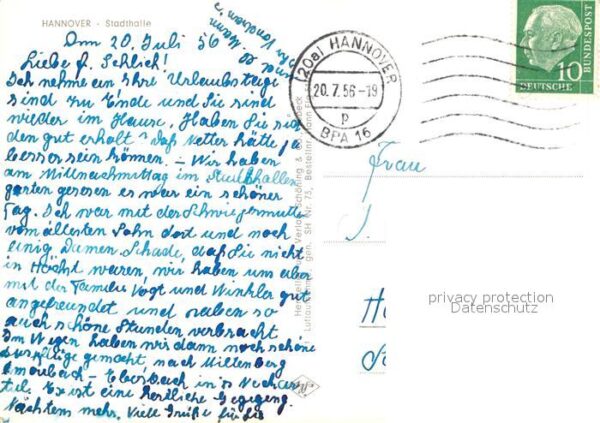 HANNOVER - Stadthalle
Dom 20. Juli 56
Liebe f. Schlich!
Ich nehme an Ihre Urlaubsteige
sind zu Ende und Sie sind
wieder im Hause. Haben Sie sich
den gut erholt? Daß Wetter hätte ja
besser sein können. - Wir haben
am Mittnachmittag im Stadthallen
garten gesesen es war ein schöner
Tag. Ich war mit der Schwiegermutter
vom ältesten Sohn dort und noch
einig Damen Schade, daß Sie nicht
in Höchst waren, wir haben uns aber
mit der Familie Vogt und Winkler gut
angefreundet und haben so
auch schöne Stunden verbracht
Im Wagen haben wir dann noch schöne
Ausflüge gemacht nach Miltenberg
Amorbach - Eberbach in's Neckar
tal. Es ist eine herrliche Gegend.
Nächstens mehr. Viele Grüße für Sie
(20a) HANNOVER
20.7.56-19
p
BPA 16
10
DEUTSCHE
BUNDESPOST
Schöning &
SH Nr. 73, Bestellnr.
Frau
privacy protection
Datenschutz